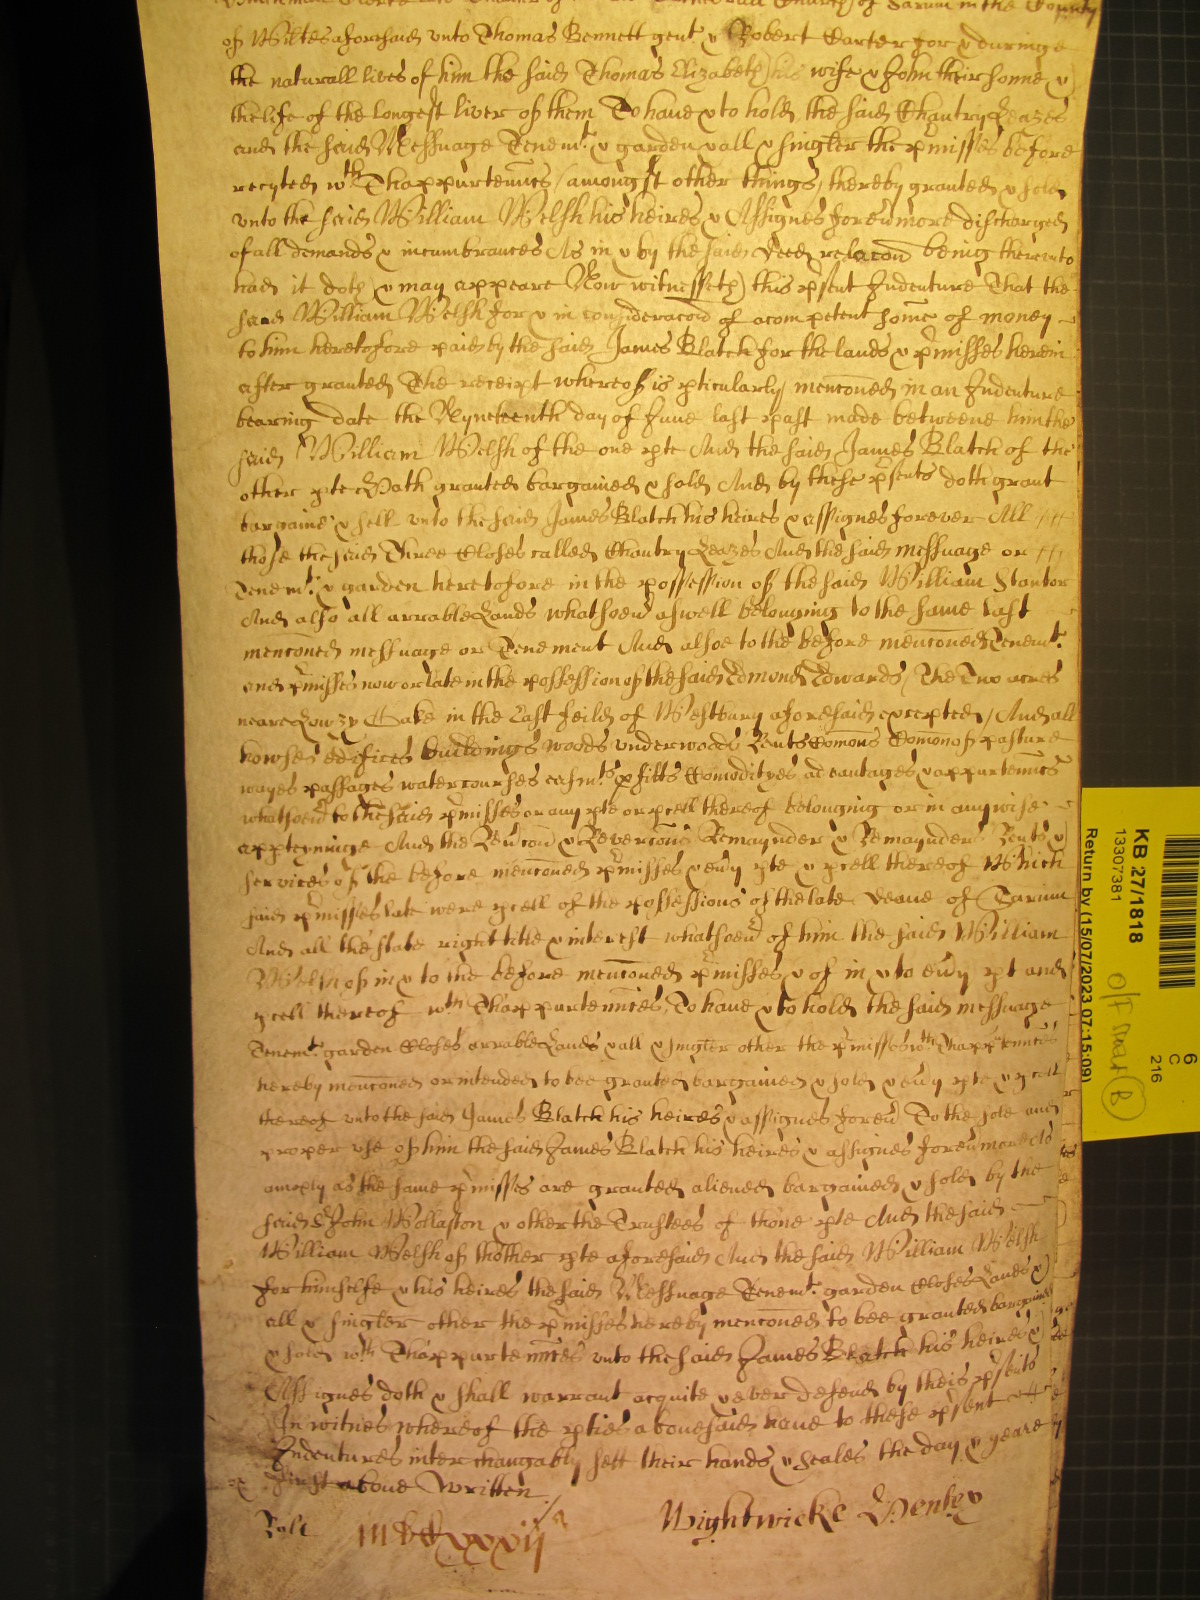 of Sarum in the County
of Wiltes aforesaid unto Thomas Bennett gent & Robert Carter for & duringe
the naturall lives of him the said Thomas Elizabeth his wife & John their sonne &
the life of the longest liver of them To have & to hold the said Chantry Leazes
and the said Messuage Tenemt. & garden & all & singler the pmisses before
recyted wth Thappurtennces (amongst other things) thereby granted & sold
unto the said William Welsh his heires & Assignes for evmore discharged
of all demands & incumbrances As in & by the said deed relacon being thereunto
had it doth & may appeare Now witnesseth this psent Indenture That the
said William Welsh for & in consideracon of a competent some of money
to him heretofore paid by the said James Blatch for the lands & pmisses herein
after granted The receipt whereof is pticularly menconed in an Indenture
bearing date the Nyneteenth day of June last past made betweene him the
said William Welsh of the one pte And the said James Blatch of the
other pte Hath granted bargained & sold And by these psents doth grant
bargaine & sell unto the said James Blatch his heires & assignes forever All
those the said Three Closes called Chantry Leazes And the said messuage or
Tenemt. & garden heretofore in the possession of the said William Stantor
And also all arrable Lands whatsoev aswell belonging to the same last
menconed messuage or Tenement And alsoe to the before menconed Tenemt.
and pmisses now or late in the possession of the said Edmond Edwards, The Two acres
neare Lowzy Oake in the East feild of Westbury aforesaid excepted, And all
howses edifices buildings woods underwoods Rents Comons Comon of pasture
wayes passages watercourses easmts pfitts Comodityes advantages & appurtennces
whatsoev to the said pmisses or any pte or pcell thereof belonging or in any wise
apptayninge And the Revcon & Revercons Remaynder & Remaynders Rents &
services of the before menconed pmisses & evy pte & pcell thereof Which
said pmisses late were pcell of the possessions of the late Deane of Sarum
And all the state right title & interest whatsoev of him the said William
Welsh of in & to the before menconed pmisses & of in & to evy pt and
pcell thereof wth Thappurtennces, To have & to hold the said messuage
Tenemt. garden Closes arrable Lands & all & singler other the pmisses wth Thappurtennces
hereby menconed or intended to bee granted bargained & sold & evy pte & pcell
thereof unto the said James Blatch his heires & assignes forev To the sole and
proper use of him the said James Blatch his heires & assignes for evmore As
amply as the same pmisses are granted aliened bargained & sold by the
said Sr John Wollaston & other the Trustees of thone pte And the said
William Welsh of thother pte aforesaid And the said William Welsh
for himselfe & his heires the said Messuage Tenemt. garden Closes Lands &
all & singler other the pmisses hereby menconed to bee granted bargained
& sold wth Thappurtennces unto the said James Blatch his heires &
Assignes doth & shall warrant acquite & ever defend by theis psents
In witnes whereof the pties abovesaid have to these psent
Indentures interchangably sett their hands & seales the day & yeare
first above written
Wightwicke Henley
KB 27/1818
13307381
Return by (15/07/2023 07:15:09)
6
C
216
B